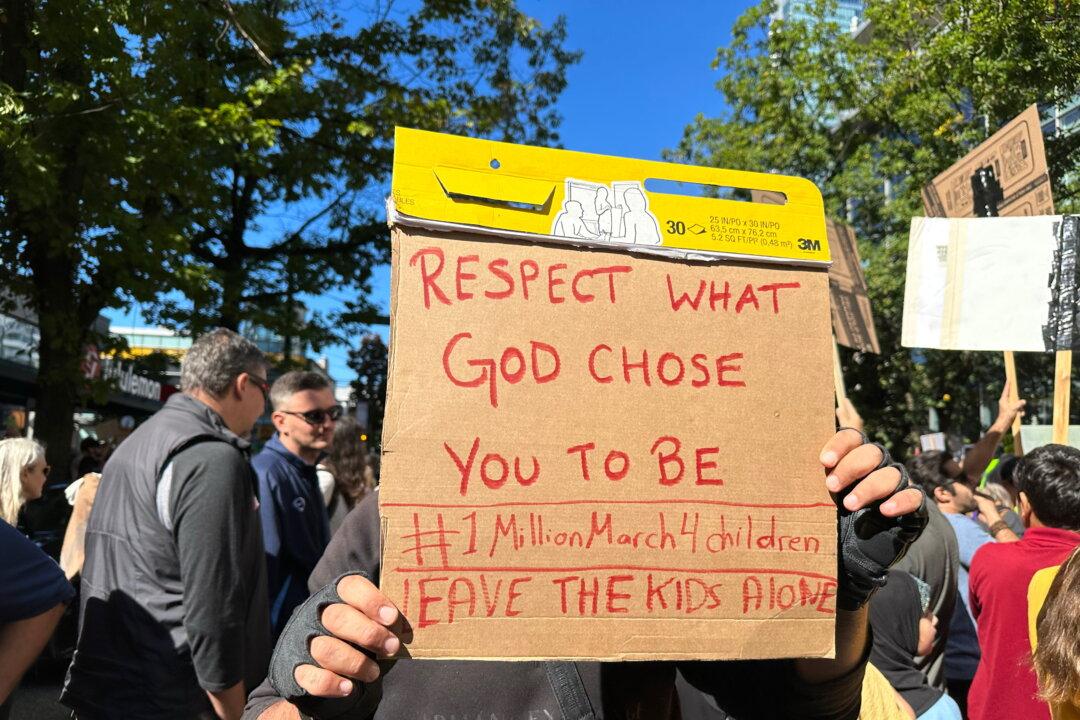 30
25 IN/PO x 30 IN/PO
63,5 cm x 76,2 cm
5.2 SQ FT/PI² (0,48 m²)
3M
RESPECT WHAT
GOD CHOSE
YOU TO BE
#1MillionMarch4children
LEAVE THE KIDS ALONE
lululemon